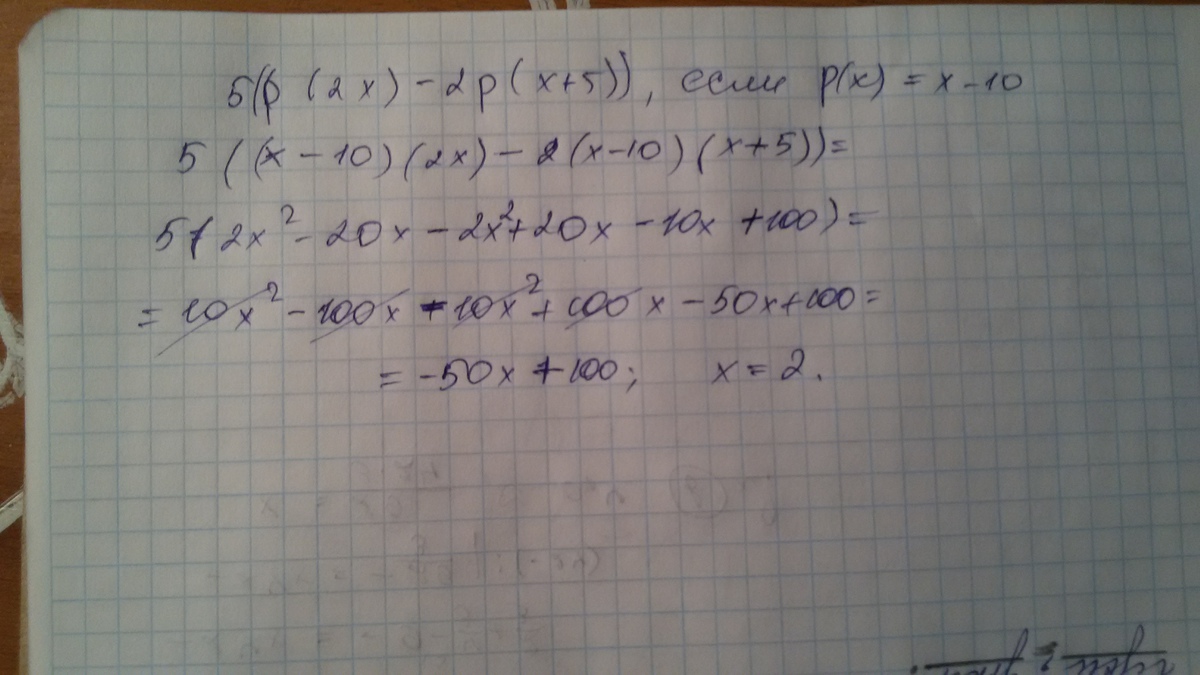 5(p (2x) - 2p (x+5)), если p(x) = x - 10
5 ((x - 10) (2x) - 2 (x-10) (x+5)) =
5(2x² - 20x - 2x² + 20x - 10x + 100) =
= 10x² - 100x - 10x² + 100x - 50x + 100 =
= -50x + 100; x = 2.